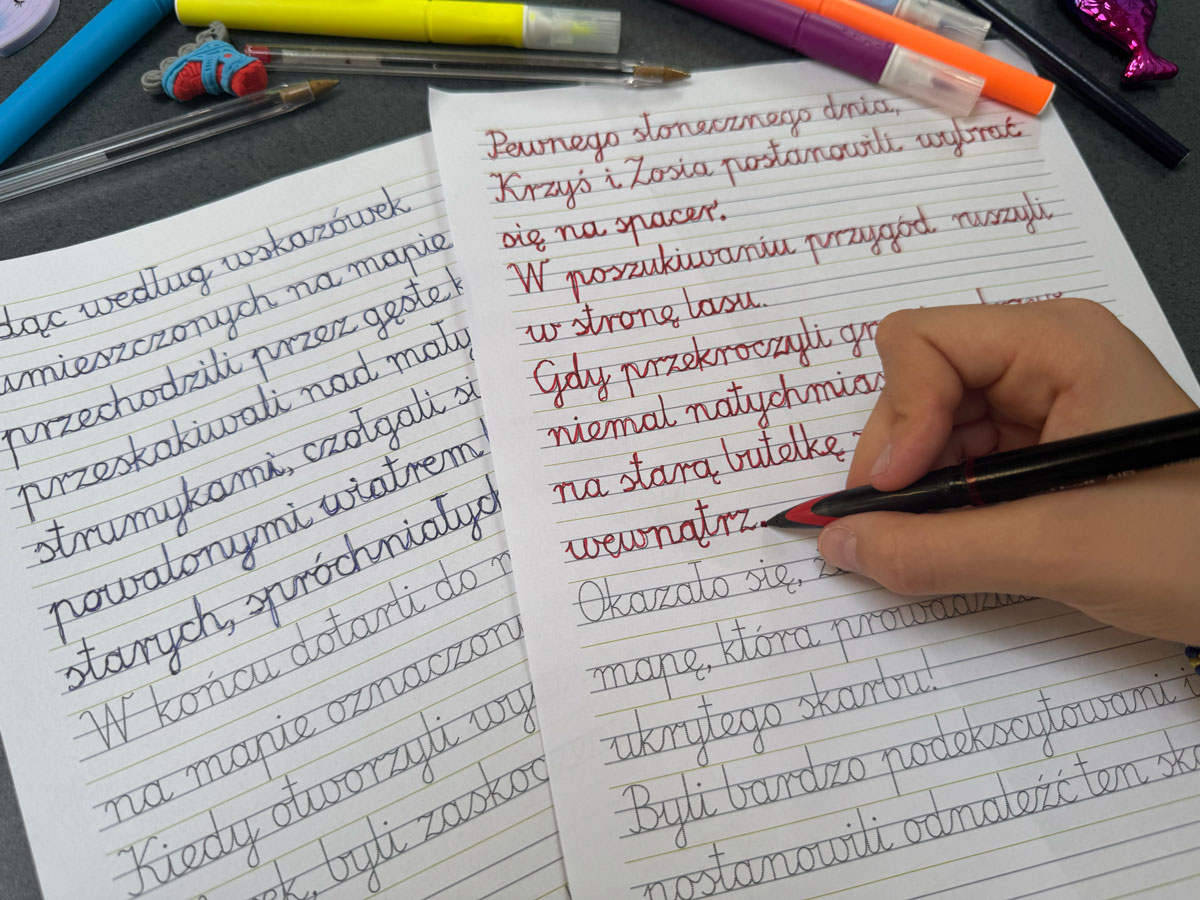 dąc według wskazówek
umieszczonych na mapie
przechodzili przez gęste
przeskakiwali nad mały
strumykami, czołgali si
powalonymi wiatrem
starych, spróchniałych
W końcu dotarli do
na mapie oznaczon
Kiedy otworzyli wy
ek, byli zasko
Pewnego słonecznego dnia,
Krzyś i Zosia postanowili wybrać
się na spacer.
W poszukiwaniu przygód ruszyli
w stronę lasu.
Gdy przekroczyli gr
niemal natychmias
na starą butelkę
wewnątrz.
Okazało się,
mapę, która prowadził
ukrytego skarbu!
Byli bardzo podekscytowani i
postanowili odnaleźć ten sk